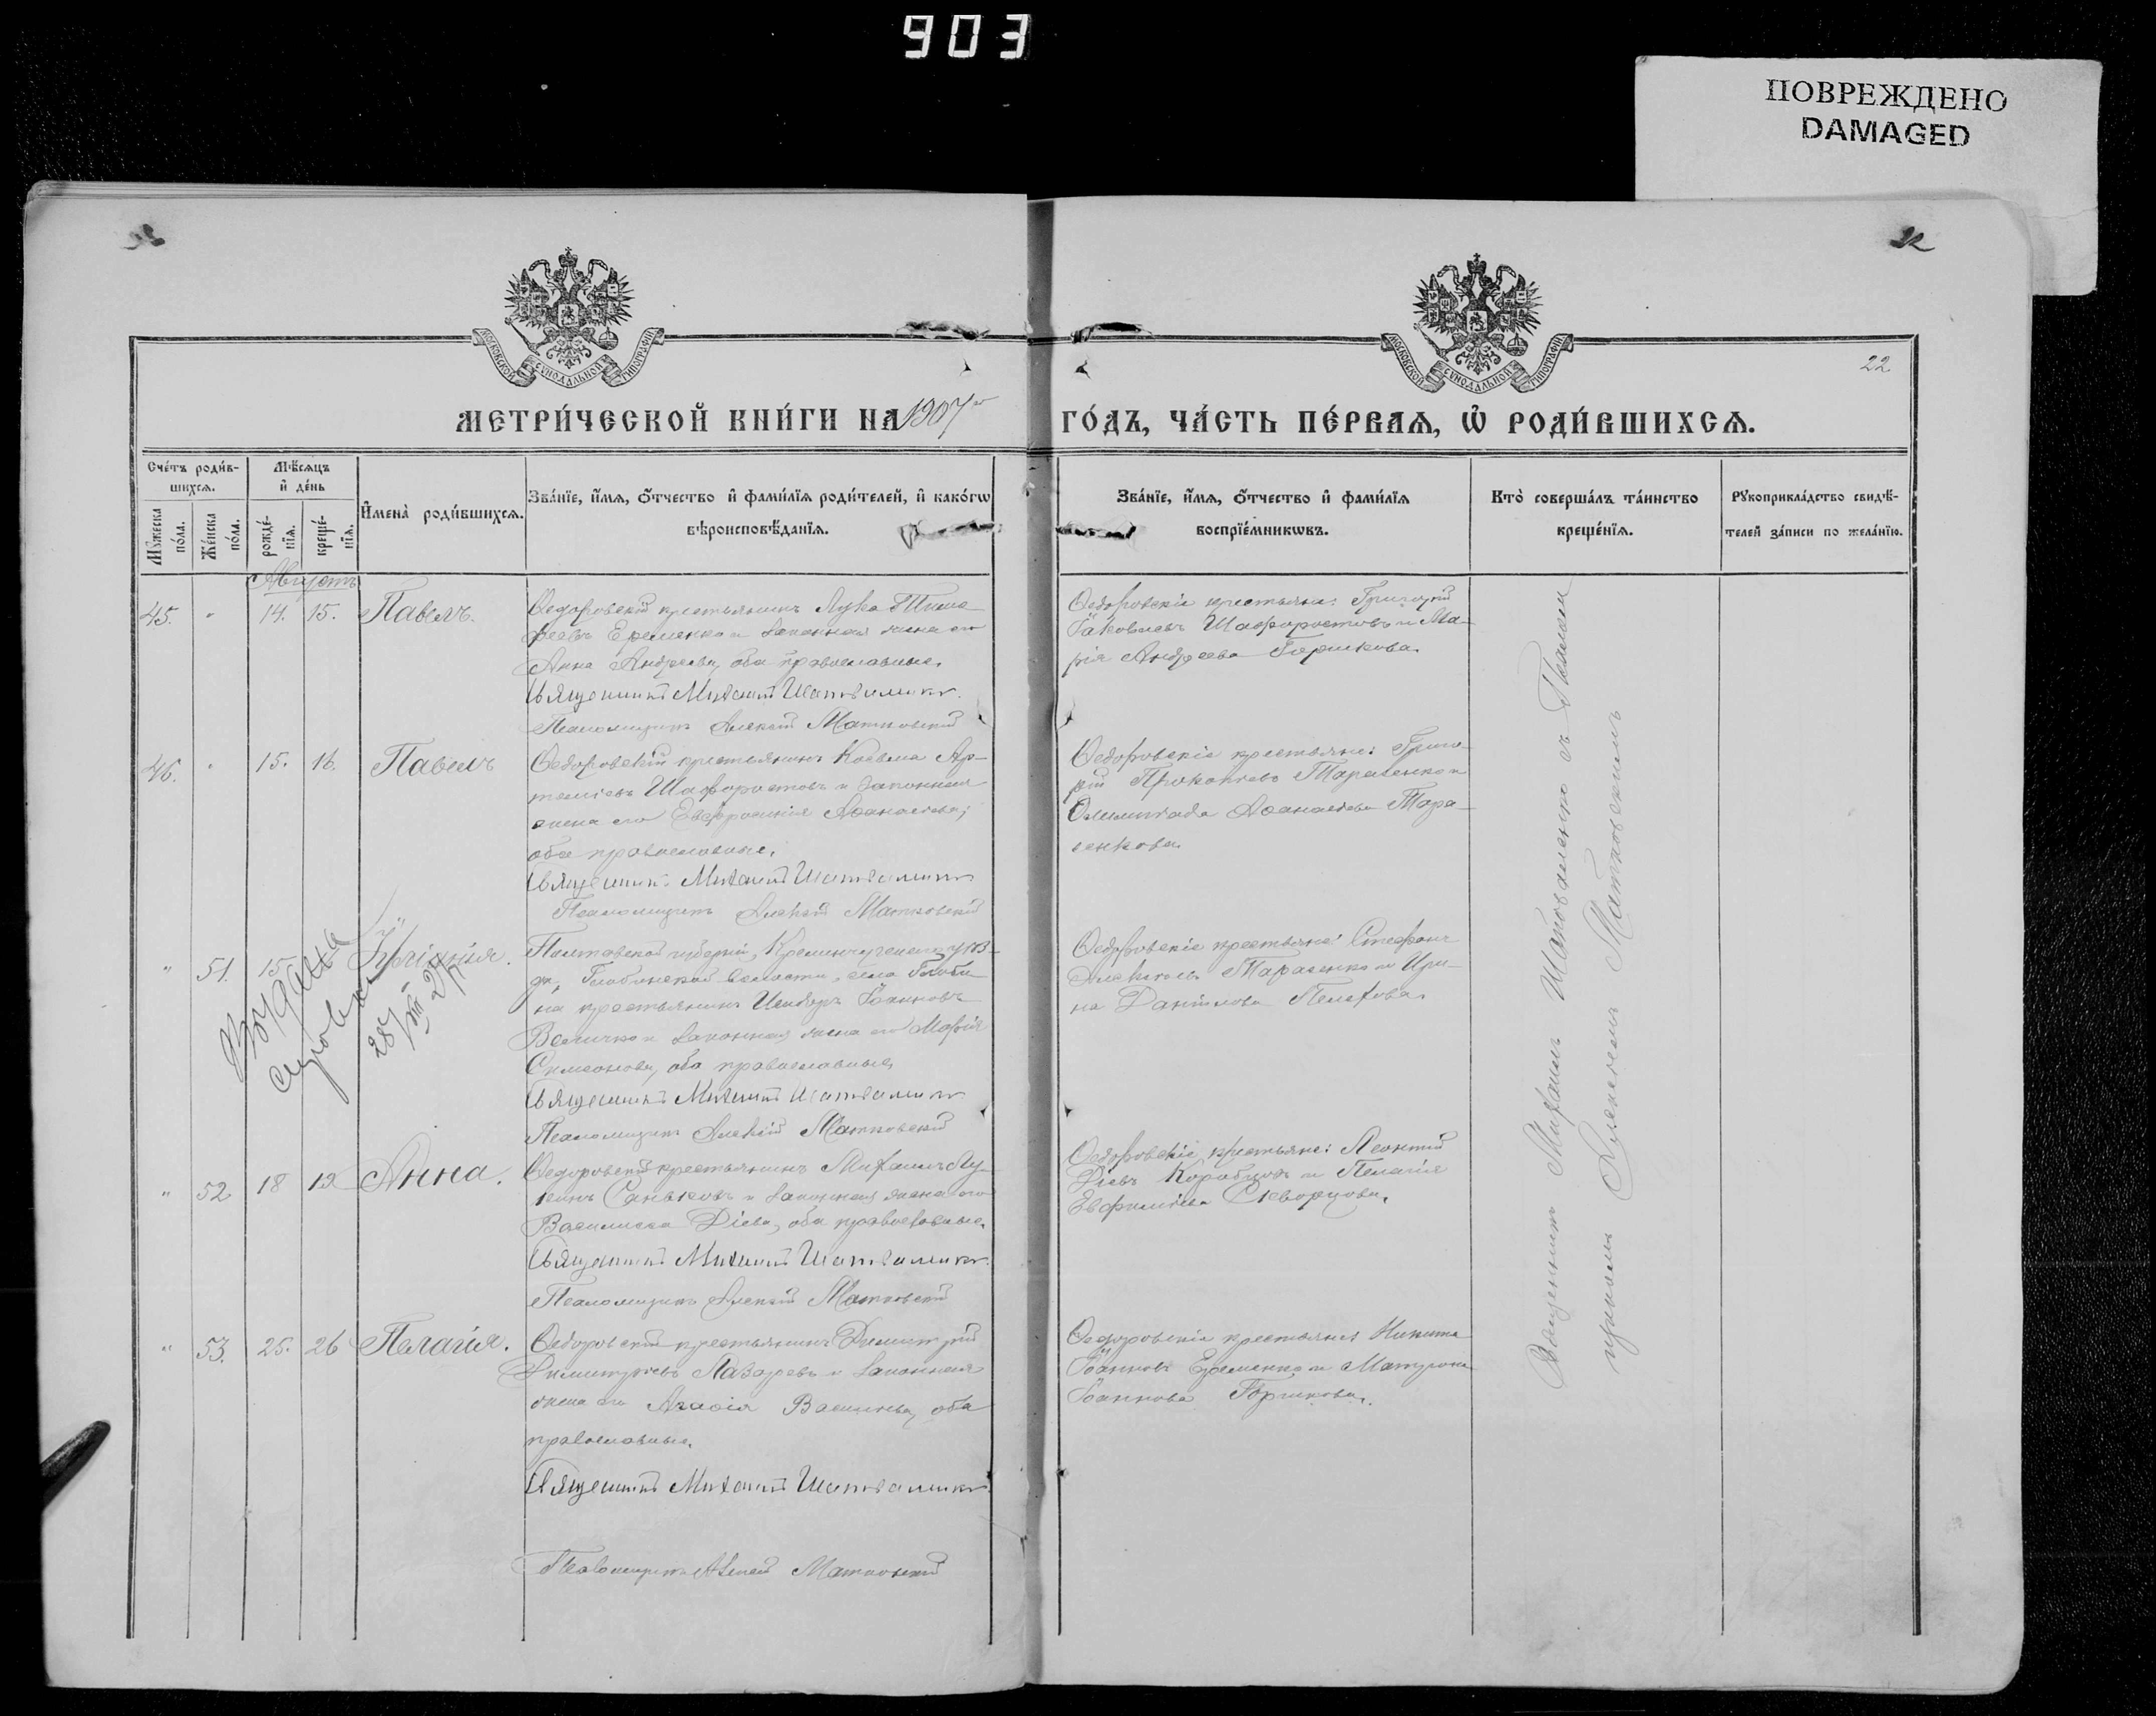 903
ПОВРЕЖДЕНО
DAMAGED
22
МОСКОВСКОЙ СѴНОДАЛЬНОЙ ТИПОГРАФІИ
МОСКОВСКОЙ СѴНОДАЛЬНОЙ ТИПОГРАФІИ
22
МЕТРИ́ЧЕСКОЙ КНИ́ГИ НА 1907
ГО́ДЪ, ЧА́СТЬ ПЕ́РВАѦ, Ѡ҆ РОДИ́ВШИХСѦ.
Сче́тъ роди́вшихсѧ.
Мꙋ́жеска по́ла.
Же́нска по́ла.
Мѣ́сѧцъ и҆ де́нь
рожде́нїѧ.
креще́нїѧ.
И҆мена̀ роди́вшихсѧ.
Зва́нїе, и҆́мѧ, ѻ҆́тчество и҆ фами́лїѧ роди́телей, и҆ како́гѡ
вѣроисповѣ́данїѧ.
Зва́нїе, и҆́мѧ, ѻ҆́тчество и҆ фами́лїѧ
воспрїе́мникѡвъ.
Кто̀ соверша́лъ та́инство
креще́нїѧ.
Рꙋкоприкла́дство свидѣ́-
телей за́писи по жела́нїю.
Августъ
45. " 14. 15. Павелъ.
Ѳедоровскій крестьянинъ Лука Тимо-
феевъ Еременко и законная жена его
Анна Андреева, оба православные.
Священникъ Михаилъ Шаповаленко
Псаломщикъ Алексій Матковскій
Ѳедоровскіе крестьяне: Григорій
Іаковлевъ Шафоростовъ и Ма-
рія Андреева Горшкова.
46. " 15. 16. Павелъ
Ѳедоровскій крестьянинъ Косьма Ар-
теміевъ Шафоростовъ и законная
жена его Евфросинія Аѳанасіева,
оба православные.
Священникъ Михаилъ Шаповаленко
Псаломщикъ Алексій Матковскій
Ѳедоровскіе крестьяне: Григо-
рій Прокопіевъ Тарасенко и
Олимпіада Аѳанасіева Тара-
сенкова
" 51. 15.
Выдана
справка
28/VIII 27
Полтавской губерніи, Кременчугскаго уѣз-
да, Глобинской волости, села Глоби-
на крестьянинъ Исидоръ Іоанновъ
Величко и законная жена его Марія
Симеонова, оба православные
Священникъ Михаилъ Шаповаленко
Псаломщикъ Алексій Матковскій
Ѳедоровскіе крестьяне: Стефанъ
Алексіевъ Тарасенко и Ири-
на Даніилова Пелехова.
" 52 18 19 Анна.
Ѳедоровскій крестьянинъ Михаилъ Лу-
кинъ Саньковъ и законная жена его
Василисса Діева, оба православные.
Священникъ Михаилъ Шаповаленко
Псаломщикъ Алексій Матковскій
Ѳедоровскіе крестьяне: Леонтій
Діевъ Коробцовъ и Пелагія
Евфиміева Скворцова.
" 53. 25. 26 Пелагія.
Ѳедоровскій крестьянинъ Димитрій
Димитріевъ Лазаревъ и законная
жена его Агафія Васильева, оба
православные.
Священникъ Михаилъ Шаповаленко
Псаломщикъ Алексій Матковскій
Ѳедоровскіе крестьяне Никита
Іоанновъ Еременко и Матрона
Іоаннова Горшкова.
Священникъ Михаилъ Шаповаленко съ Псалом-
щикомъ Алексіемъ Матковскимъ